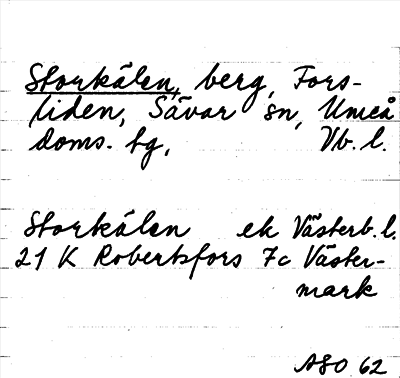 Storkålen, berg, Fors-
liden, Sävar sn, Umeå
doms. tg, Vb. l.
Storkålen ek Västerb. l.
21 K Robertsfors 7c Väster-
mark
ASO 62